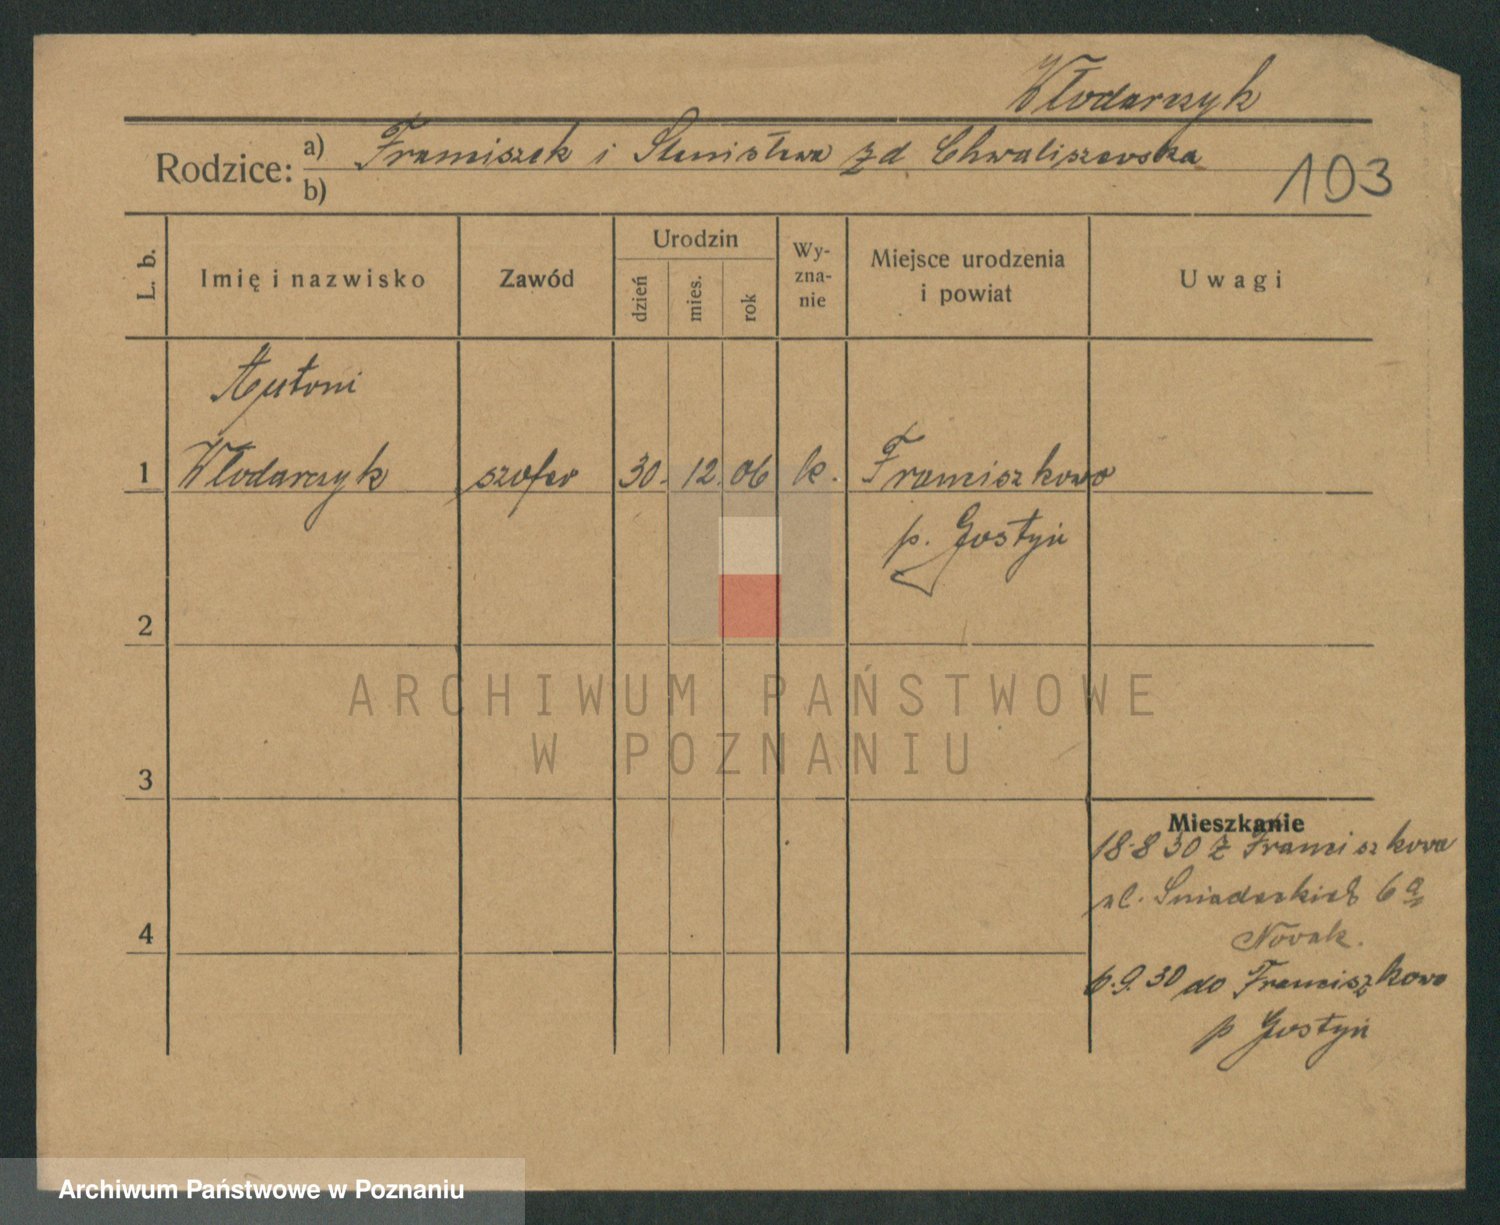 Włodarczyk
Rodzice: a) Franciszek i Stanisława z d Chwaliszewska
b)
103
L. b.
Imię i nazwisko
Zawód
Urodzin
dzień
mies.
rok
Wy-
zna-
nie
Miejsce urodzenia
i powiat
Uwagi
Antoni
1 Włodarczyk szofer 30. 12. 06 k. Franciszkowo
p. Gostyń
2
3
4
Mieszkanie
18.8 30 z Franciszkowa
ul. Śniadeckich 6 a
Nowak.
6.9.30 do Franciszkowo
p Gostyń
ARCHIWUM PAŃSTWOWE
W POZNANIU
Archiwum Państwowe w Poznaniu